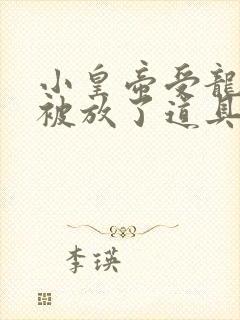 小皇帝受龍
被放了道具
李瑛